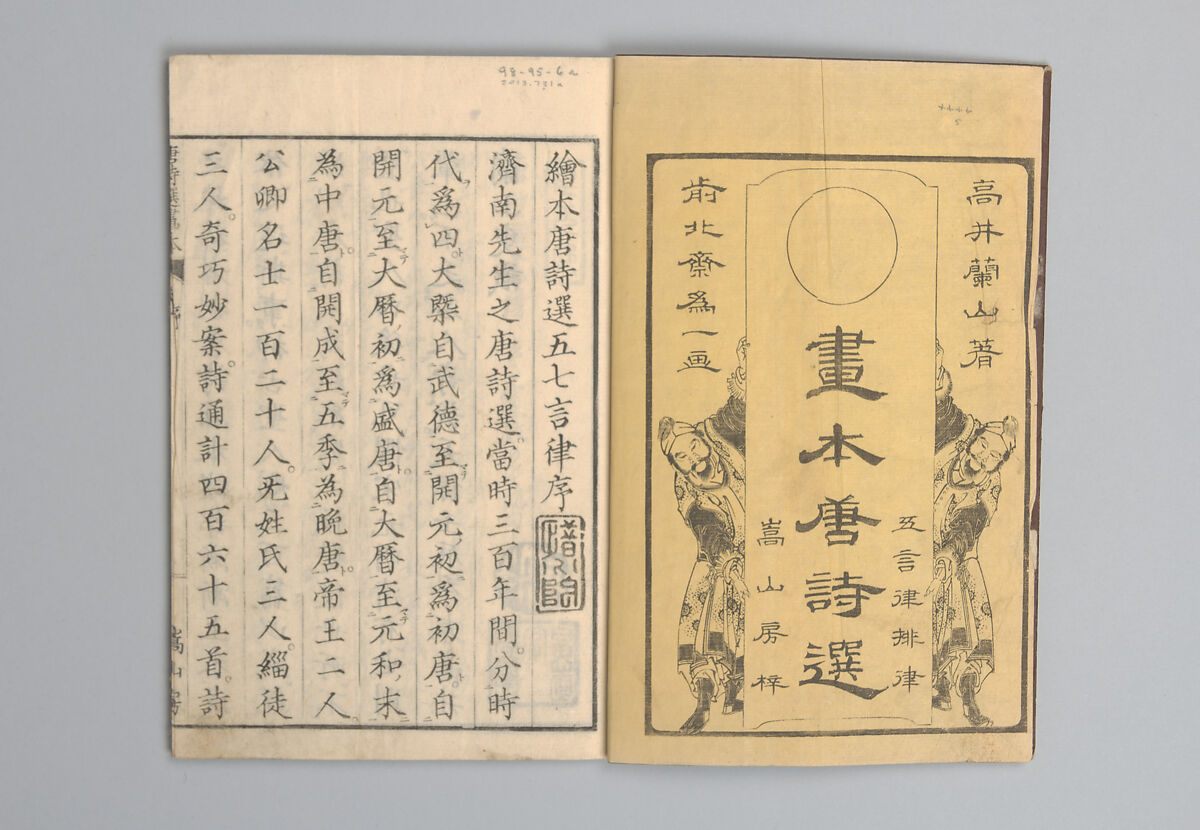 高井蘭山著
畫本唐詩選
五言律排律
嵩山房梓
前北齋為一画
繪本唐詩選五七言律序
濟南先生之唐詩選當時三百年間分時
代爲四大槩自武德至開元初爲初唐自
開元至大曆初爲盛唐自大曆至元和末
為中唐自開成至五季為晩唐帝王二人
公卿名士一百二十人旡姓氏三人緇徒
三人奇巧妙案詩通計四百六十五首詩
嵩山房
98-95-6a
2013.731a